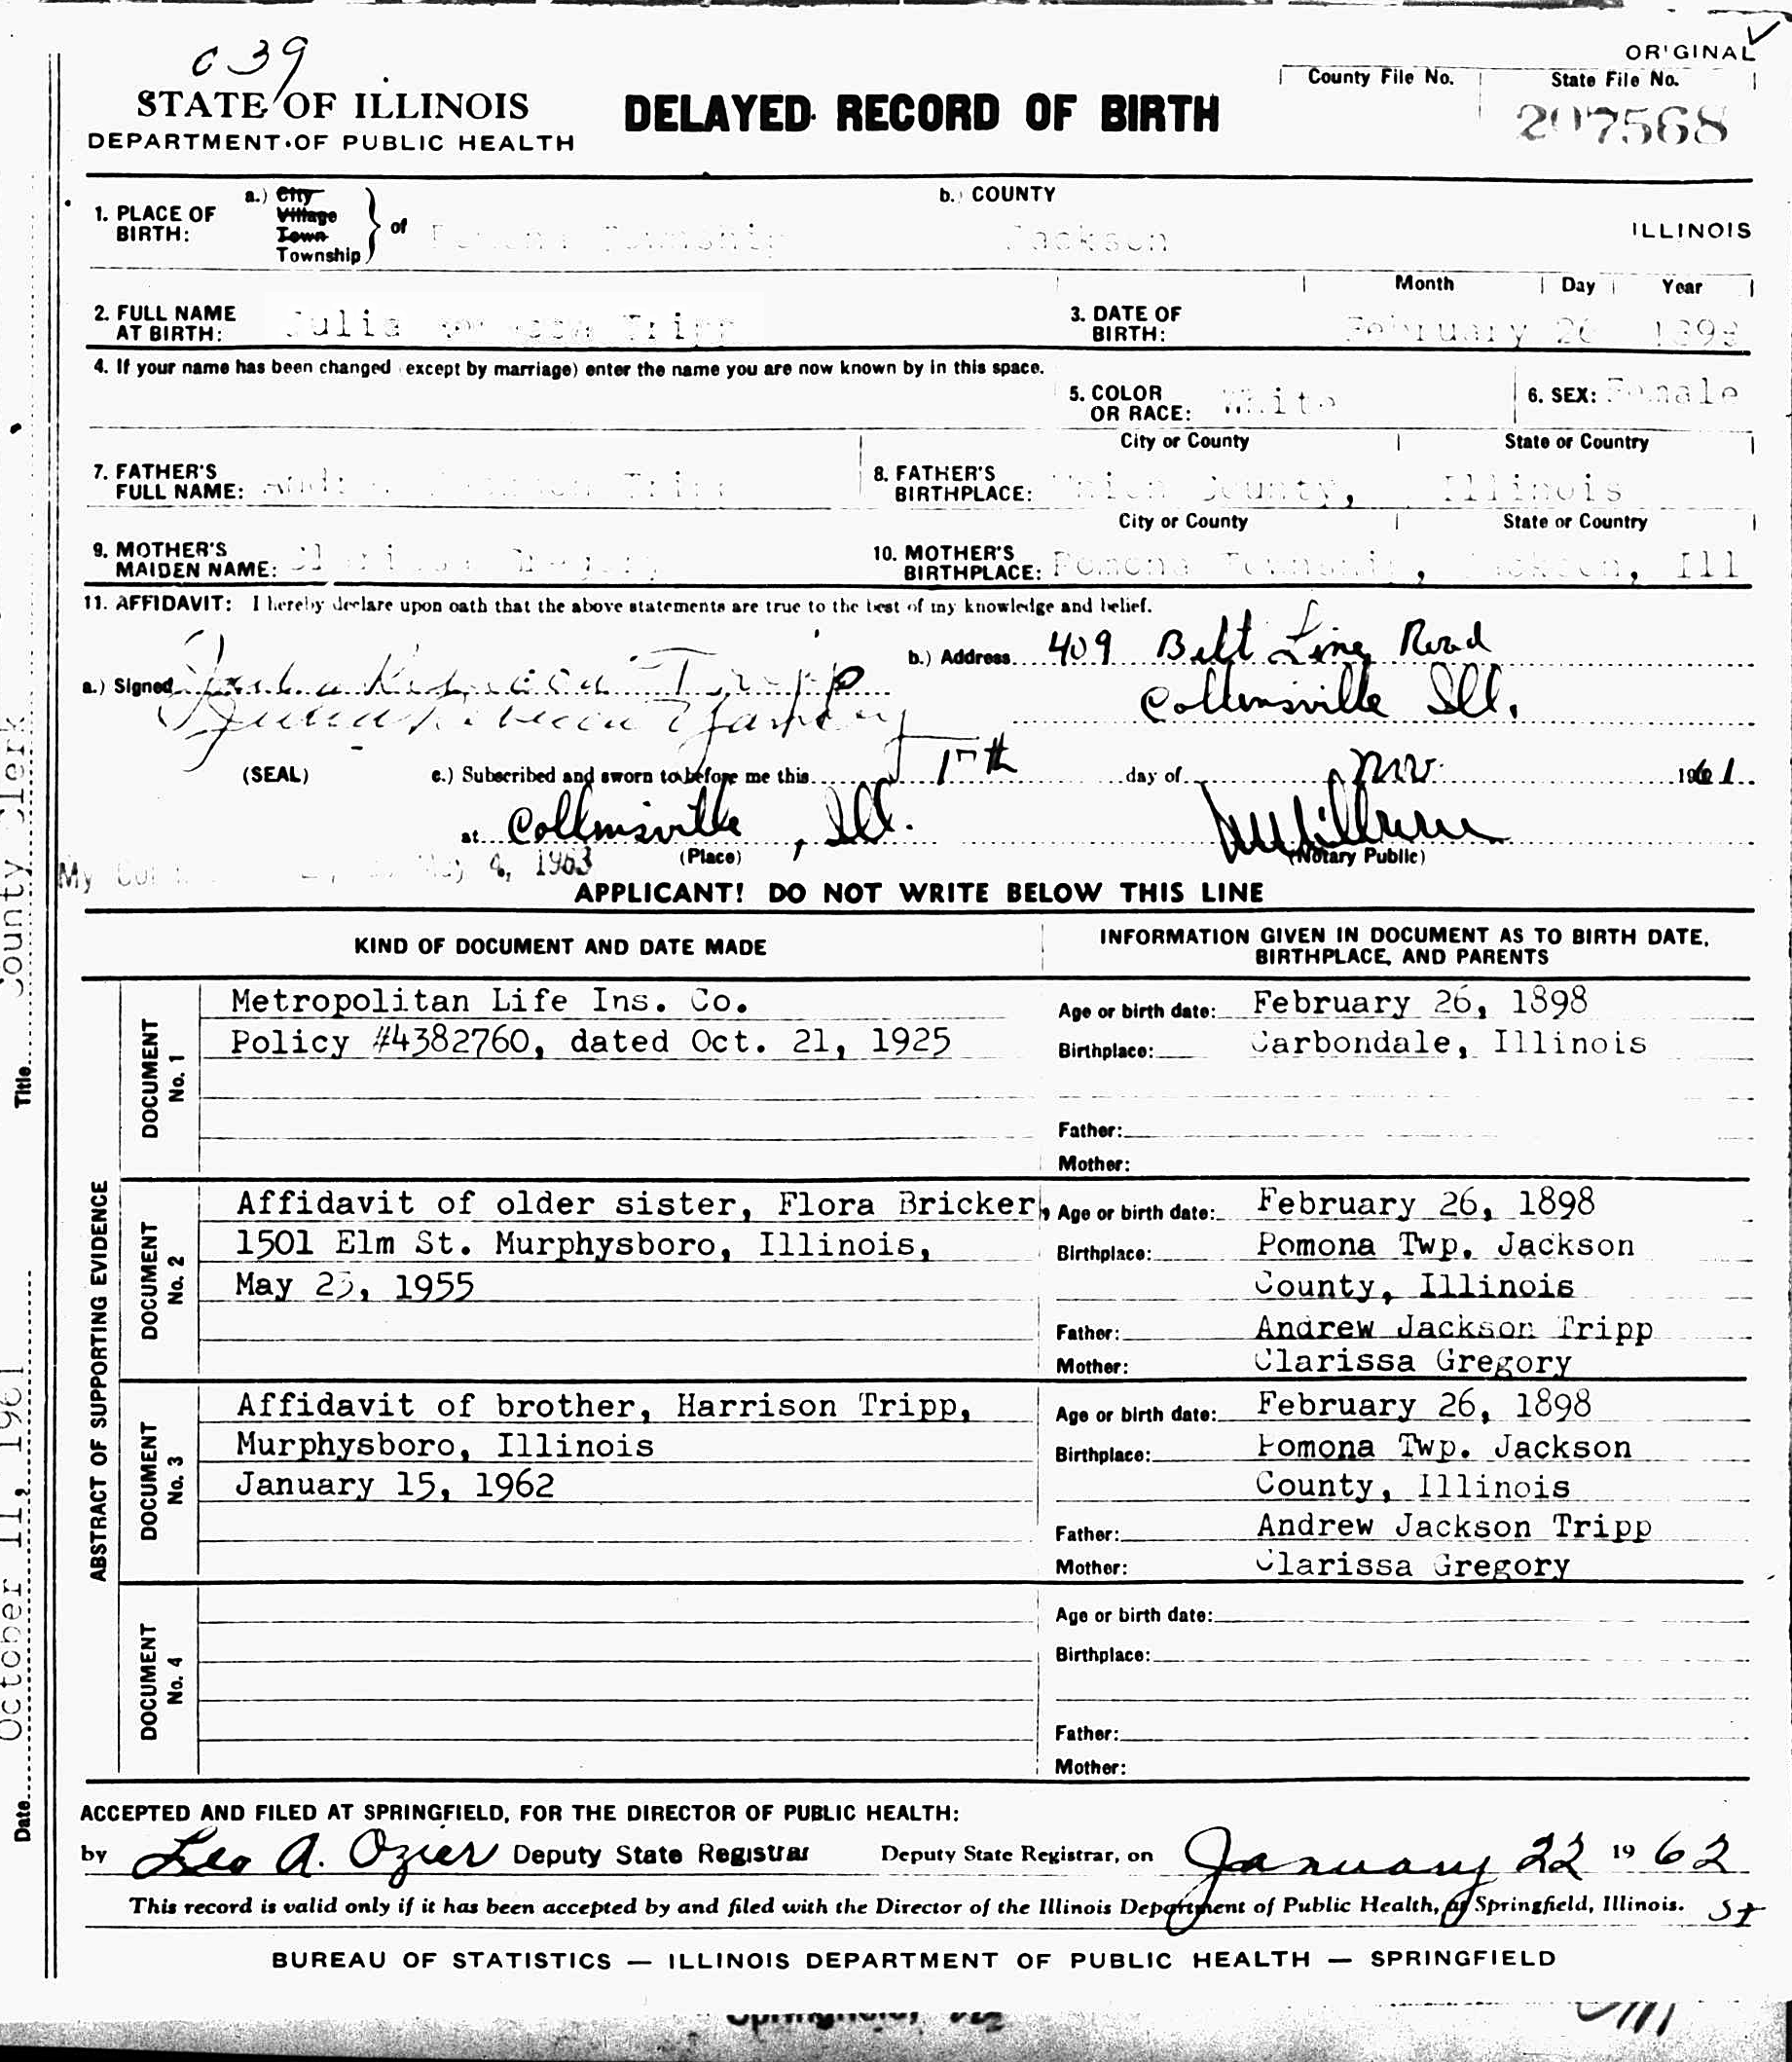 c 39
ORIGINAL
STATE OF ILLINOIS
DEPARTMENT OF PUBLIC HEALTH
DELAYED RECORD OF BIRTH
County File No.
State File No.
207568
1. PLACE OF BIRTH:
a.) City
Village
Town
Township
of Pomona Township
b.) COUNTY
Jackson
ILLINOIS
2. FULL NAME AT BIRTH: Julia Tripp
3. DATE OF BIRTH:
Month Day Year
February 26 1898
4. If your name has been changed (except by marriage) enter the name you are now known by in this space.
5. COLOR OR RACE: White
6. SEX: Female
7. FATHER'S FULL NAME: Andrew Jackson Tripp
8. FATHER'S BIRTHPLACE:
City or County State or Country
Union County, Illinois
9. MOTHER'S MAIDEN NAME: Clarissa Gregory
10. MOTHER'S BIRTHPLACE:
City or County State or Country
Pomona Township, Jackson, Ill
11. AFFIDAVIT: I hereby declare upon oath that the above statements are true to the best of my knowledge and belief.
a.) Signed Julia Rebecca Tripp
Julia Rebecca
b.) Address 409 Belt Line Road
Collinsville Ill.
(SEAL) c.) Subscribed and sworn to before me this 17th day of Nov. 1961
at Collinsville, Ill.
(Place) (Notary Public)
My May 4, 1963
APPLICANT! DO NOT WRITE BELOW THIS LINE
KIND OF DOCUMENT AND DATE MADE
INFORMATION GIVEN IN DOCUMENT AS TO BIRTH DATE, BIRTHPLACE, AND PARENTS
ABSTRACT OF SUPPORTING EVIDENCE
DOCUMENT No. 1
Metropolitan Life Ins. Co.
Policy #4382760, dated Oct. 21, 1925
Age or birth date: February 26, 1898
Birthplace: Carbondale, Illinois
Father:
Mother:
DOCUMENT No. 2
Affidavit of older sister, Flora Bricker,
1501 Elm St. Murphysboro, Illinois,
May 23, 1955
Age or birth date: February 26, 1898
Birthplace: Pomona Twp. Jackson
County, Illinois
Father: Andrew Jackson Tripp
Mother: Clarissa Gregory
DOCUMENT No. 3
Affidavit of brother, Harrison Tripp,
Murphysboro, Illinois
January 15, 1962
Age or birth date: February 26, 1898
Birthplace: Pomona Twp. Jackson
County, Illinois
Father: Andrew Jackson Tripp
Mother: Clarissa Gregory
DOCUMENT No. 4
Age or birth date:
Birthplace:
Father:
Mother:
ACCEPTED AND FILED AT SPRINGFIELD, FOR THE DIRECTOR OF PUBLIC HEALTH:
by Leo A. Ozier Deputy State Registrar Deputy State Registrar, on January 22 1962
This record is valid only if it has been accepted by and filed with the Director of the Illinois Department of Public Health, at Springfield, Illinois.
BUREAU OF STATISTICS — ILLINOIS DEPARTMENT OF PUBLIC HEALTH — SPRINGFIELD
Date October 11, 1961 Title County Clerk